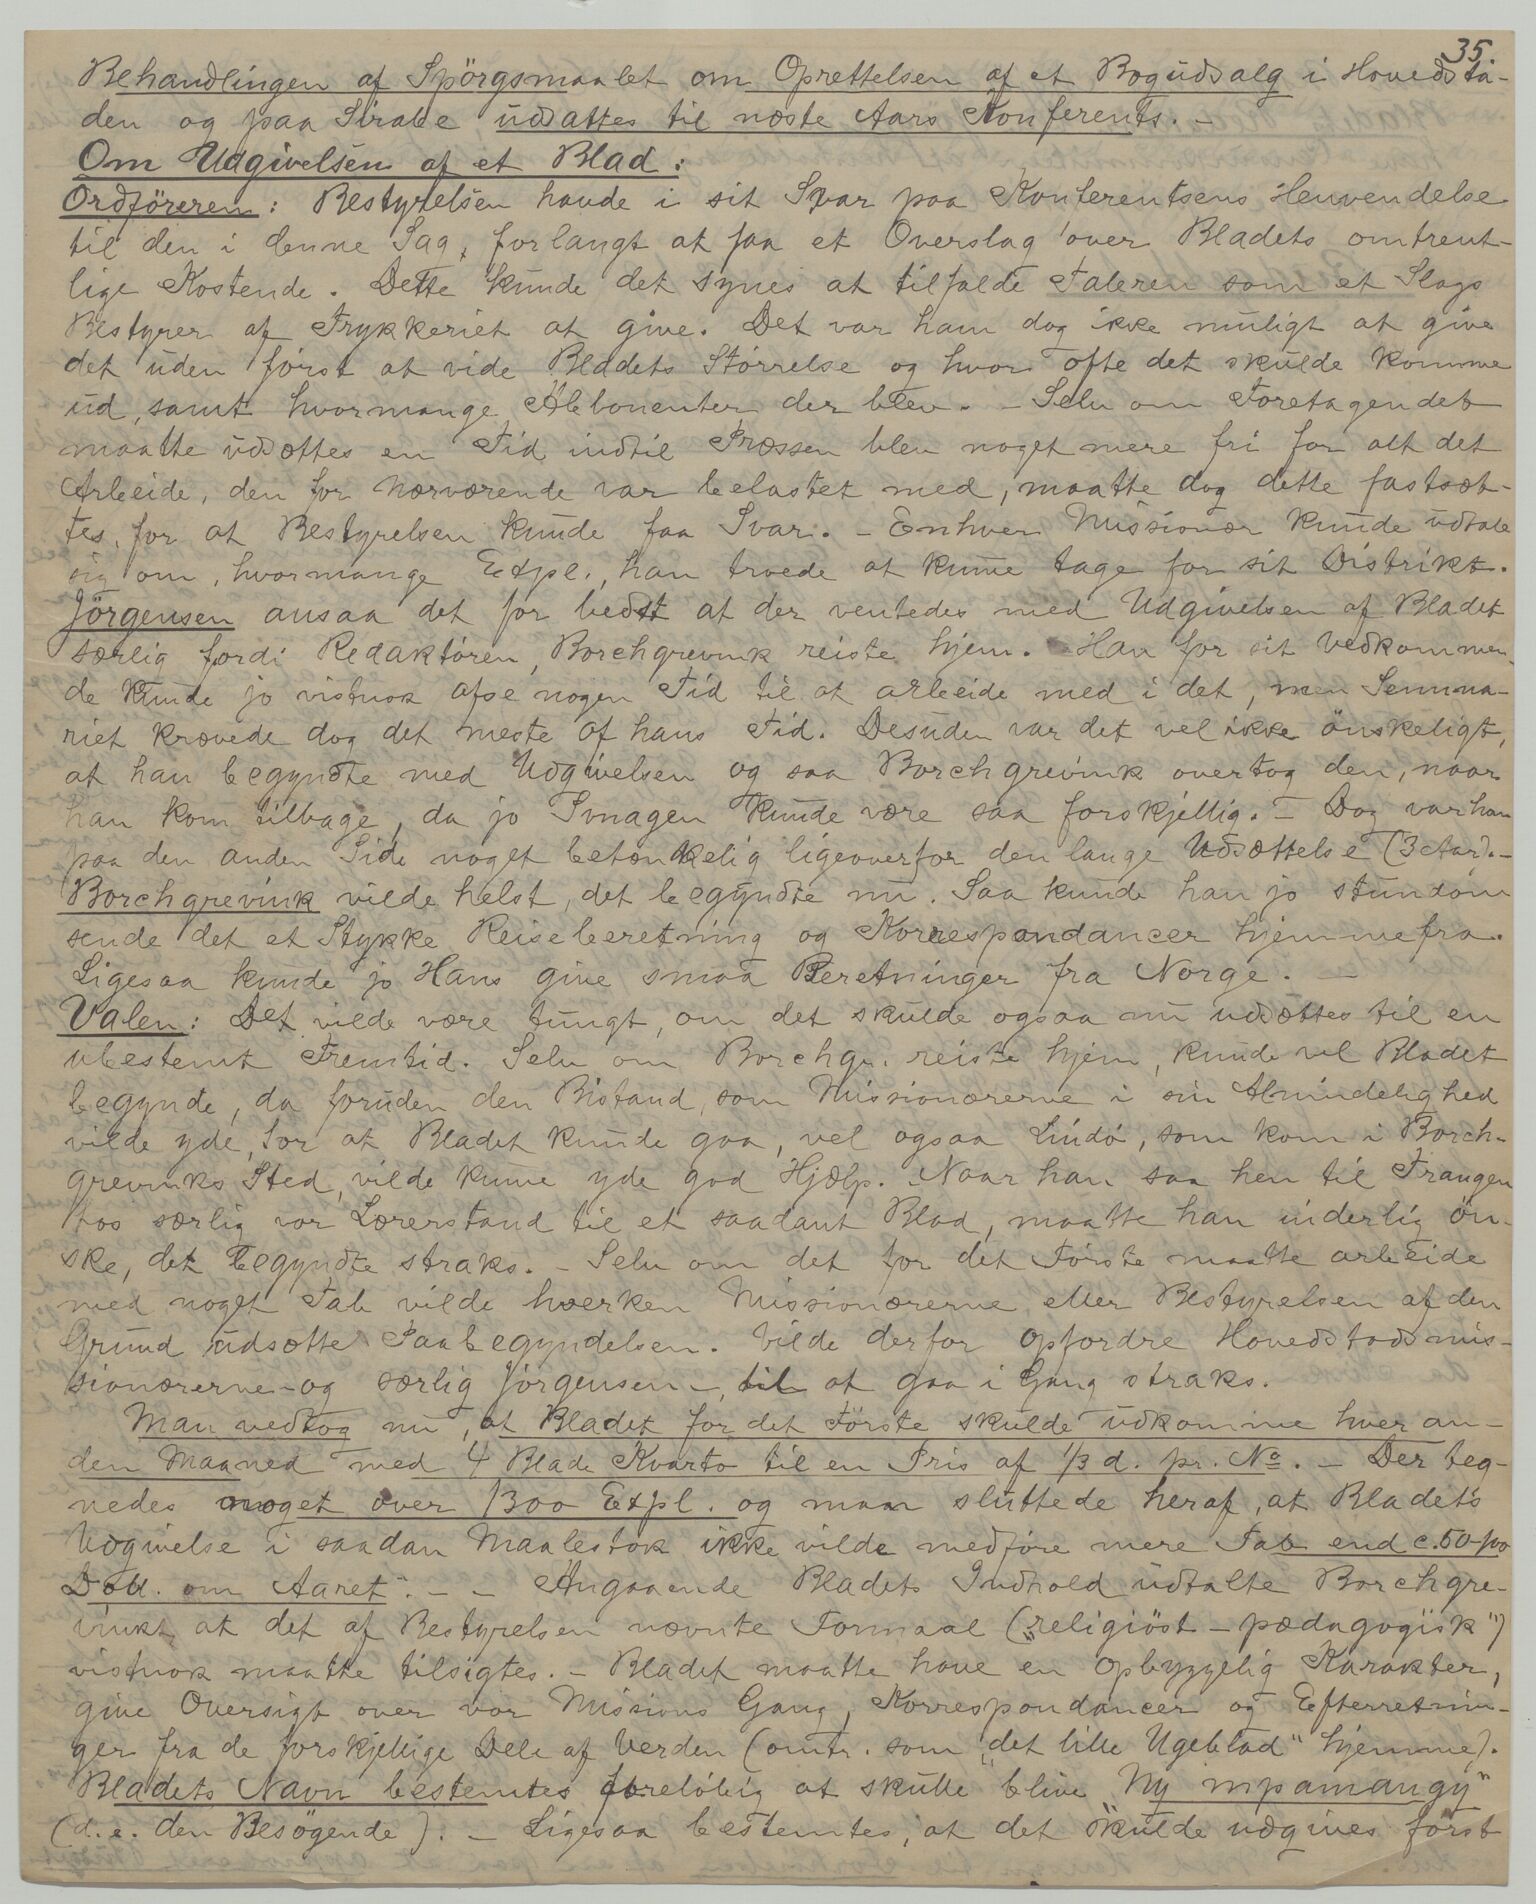 35
Behandlingen af Spörgsmaalet om Oprettelsen af et Bogudsalg i Hovedsta-
den og paa Sirabe udsattes til næste Aars Konferents. -
Om Udgivelsen af et Blad:
Ordföreren: Bestyrelsen havde i sit Svar paa Konferentsens Henvendelse
til den i denne Sag, forlangt at faa et Overslag over Bladets omtrent-
lige Kostende. Dette kunde det synes at tilfalde Taleren som et Slags
Bestyrer af Trykkeriet at give. Det var ham dog ikke muligt at give
det uden först at vide Bladets Störrelse og hvor ofte det skulde komme
ud, samt hvormange Abbonenter der blev. - Selv om Foretagendet
maatte udsættes en Tid indtil Pressen blev noget mere fri for alt det
Arbeide, den for Nærværende var belastet med, maatte dog dette fastsæt-
tes, for at Bestyrelsen kunde faa Svar. - Enhver Missionær kunde udtale
sig om, hvormange Expl., han troede at kunne tage for sit Distrikt.
Jörgensen ansaa det for bedst at der ventedes med Udgivelsen af Bladet
særlig fordi Redaktören, Borchgrevink reiste hjem. Han for sit Vedkommen-
de kunde jo vistnok afse nogen Tid til at arbeide med i det, men Semina-
riet krævede dog det meste af hans Tid. Desuden var det vel ikke önskeligt,
at han begyndte med Udgivelsen og saa Borchgrevink overtog den, naar
han kom tilbage, da jo Smagen kunde være saa forskjellig. - Dog var han
paa den anden Side noget betænkelig ligeoverfor den lange Udsættelse (3 Aar). -
Borchgrevink vilde helst, det begyndte nu. Saa kunde han jo stundom
sende det et Stykke Reiseberetning og Korrespondancer hjemmefra.
Ligesaa kunde jo Hans give smaa Beretninger fra Norge. -
Valen: Det vilde være tungt, om det skulde ogsaa nu udsættes til en
ubestemt Fremtid. Selv om Borchgr. reiste hjem, kunde vel Bladet
begynde, da foruden den Bistand, som Missionærerne i sin Almindelighed
vilde yde, for at Bladet kunde gaa, vel ogsaa Lindö, som kom i Borch-
grevinks Sted, vilde kunne yde god Hjælp. Naar han saa hen til Trangen
hos særlig vor Lærerstand til et saadant Blad, maatte han inderlig ön-
ske, det begyndte straks. - Selv om det for det Förste maatte arbeide
med noget Tab vilde hverken Missionærerne eller Bestyrelsen af den
Grund udsætte Paabegyndelsen. Vilde derfor opfordre Hovedstadsmis-
sionærerne - og særlig Jörgensen -, til at gaa i Gang straks.
Man vedtog nu, at Bladet for det Förste skulde udkomme hver an-
den Maaned med 4 Blade Kvarto til en Pris af 1/3 d. pr. No. - Der teg-
nedes noget over 1300 Expl. og man sluttede heraf, at Bladets
Udgivelse i saadan Maalestok ikke vilde medföre mere Tab end c. 50-100
Doll. om Aaret. - - Angaaende Bladets Indhold udtalte Borchgre-
vink, at det af Bestyrelsen nævnte Formaal ("religiöst - pædagogisk")
vistnok maatte tilsigtes. - Bladet maatte have en opbyggelig Karakter,
give Oversigt over vor Missions Gang, Korrespondancer og Efterretnin-
ger fra de forskjellige Dele af Verden (omtr. som "det lille Ugeblad" hjemme).
Bladets Navn bestemtes forelöbig at skulle blive "Ny mpamangy"
(d. e. den Besögende). - Ligesaa bestemtes, at det skulde udgives först